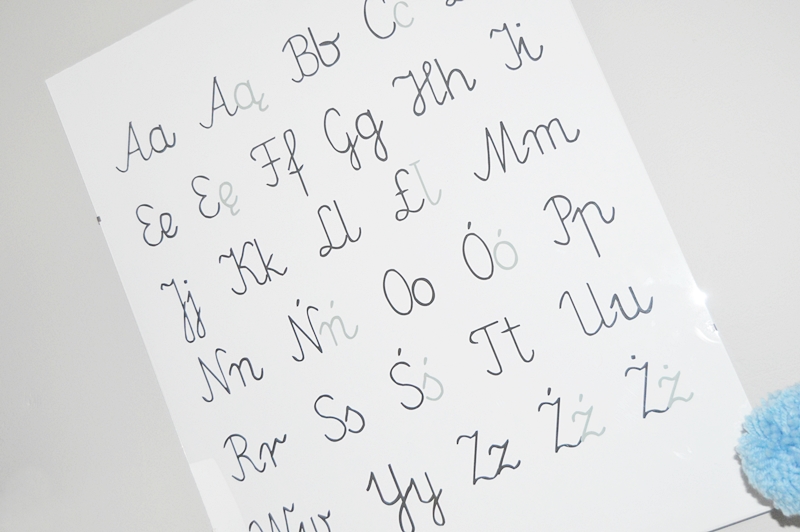 Aa Aą Bb Cc
Ee Eę Ff Gg Hh Ii
Jj Kk Ll Łł Mm
Nn Ńń Oo Óó Pp
Rr Ss Śś Tt Uu
Ww Yy Zz Źź Żż